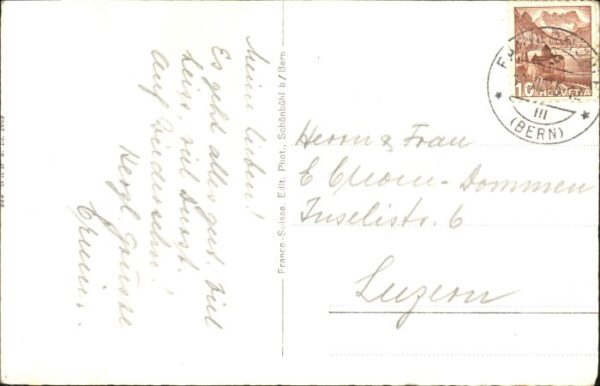 Meine Lieben!
Es geht alles gut. Viel
heiss, viel Durst!
Auf Wiedersehn!
Herzl. Grüsse
Erwin.
Franco-Suisse. Edit. Phot., Schönbühl b/Bern
10 HELVETIA
III
(BERN)
Herrn & Frau
E -Dommen
Inselistr. 6
Luzern